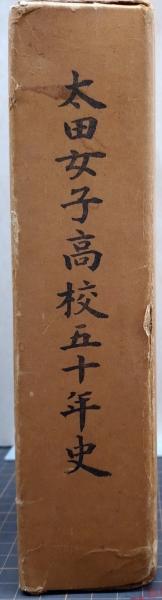 太田女子高校五十年史